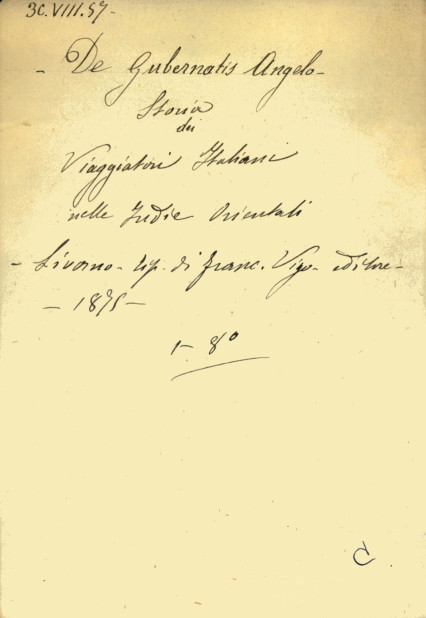 3C.VIII.57-
- De Gubernatis Angelo-
Storia
dei
Viaggiatori Italiani
nelle Indie Orientali
- Livorno - tip. di Franc. Vigo - editore -
- 1875 -
1- 8°
C